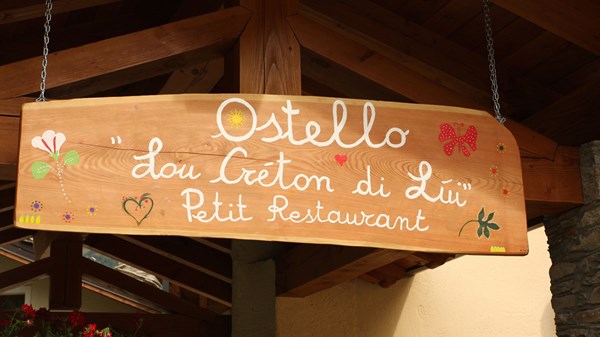 Ostello
"Lou Créton di Lüi"
Petit Restaurant